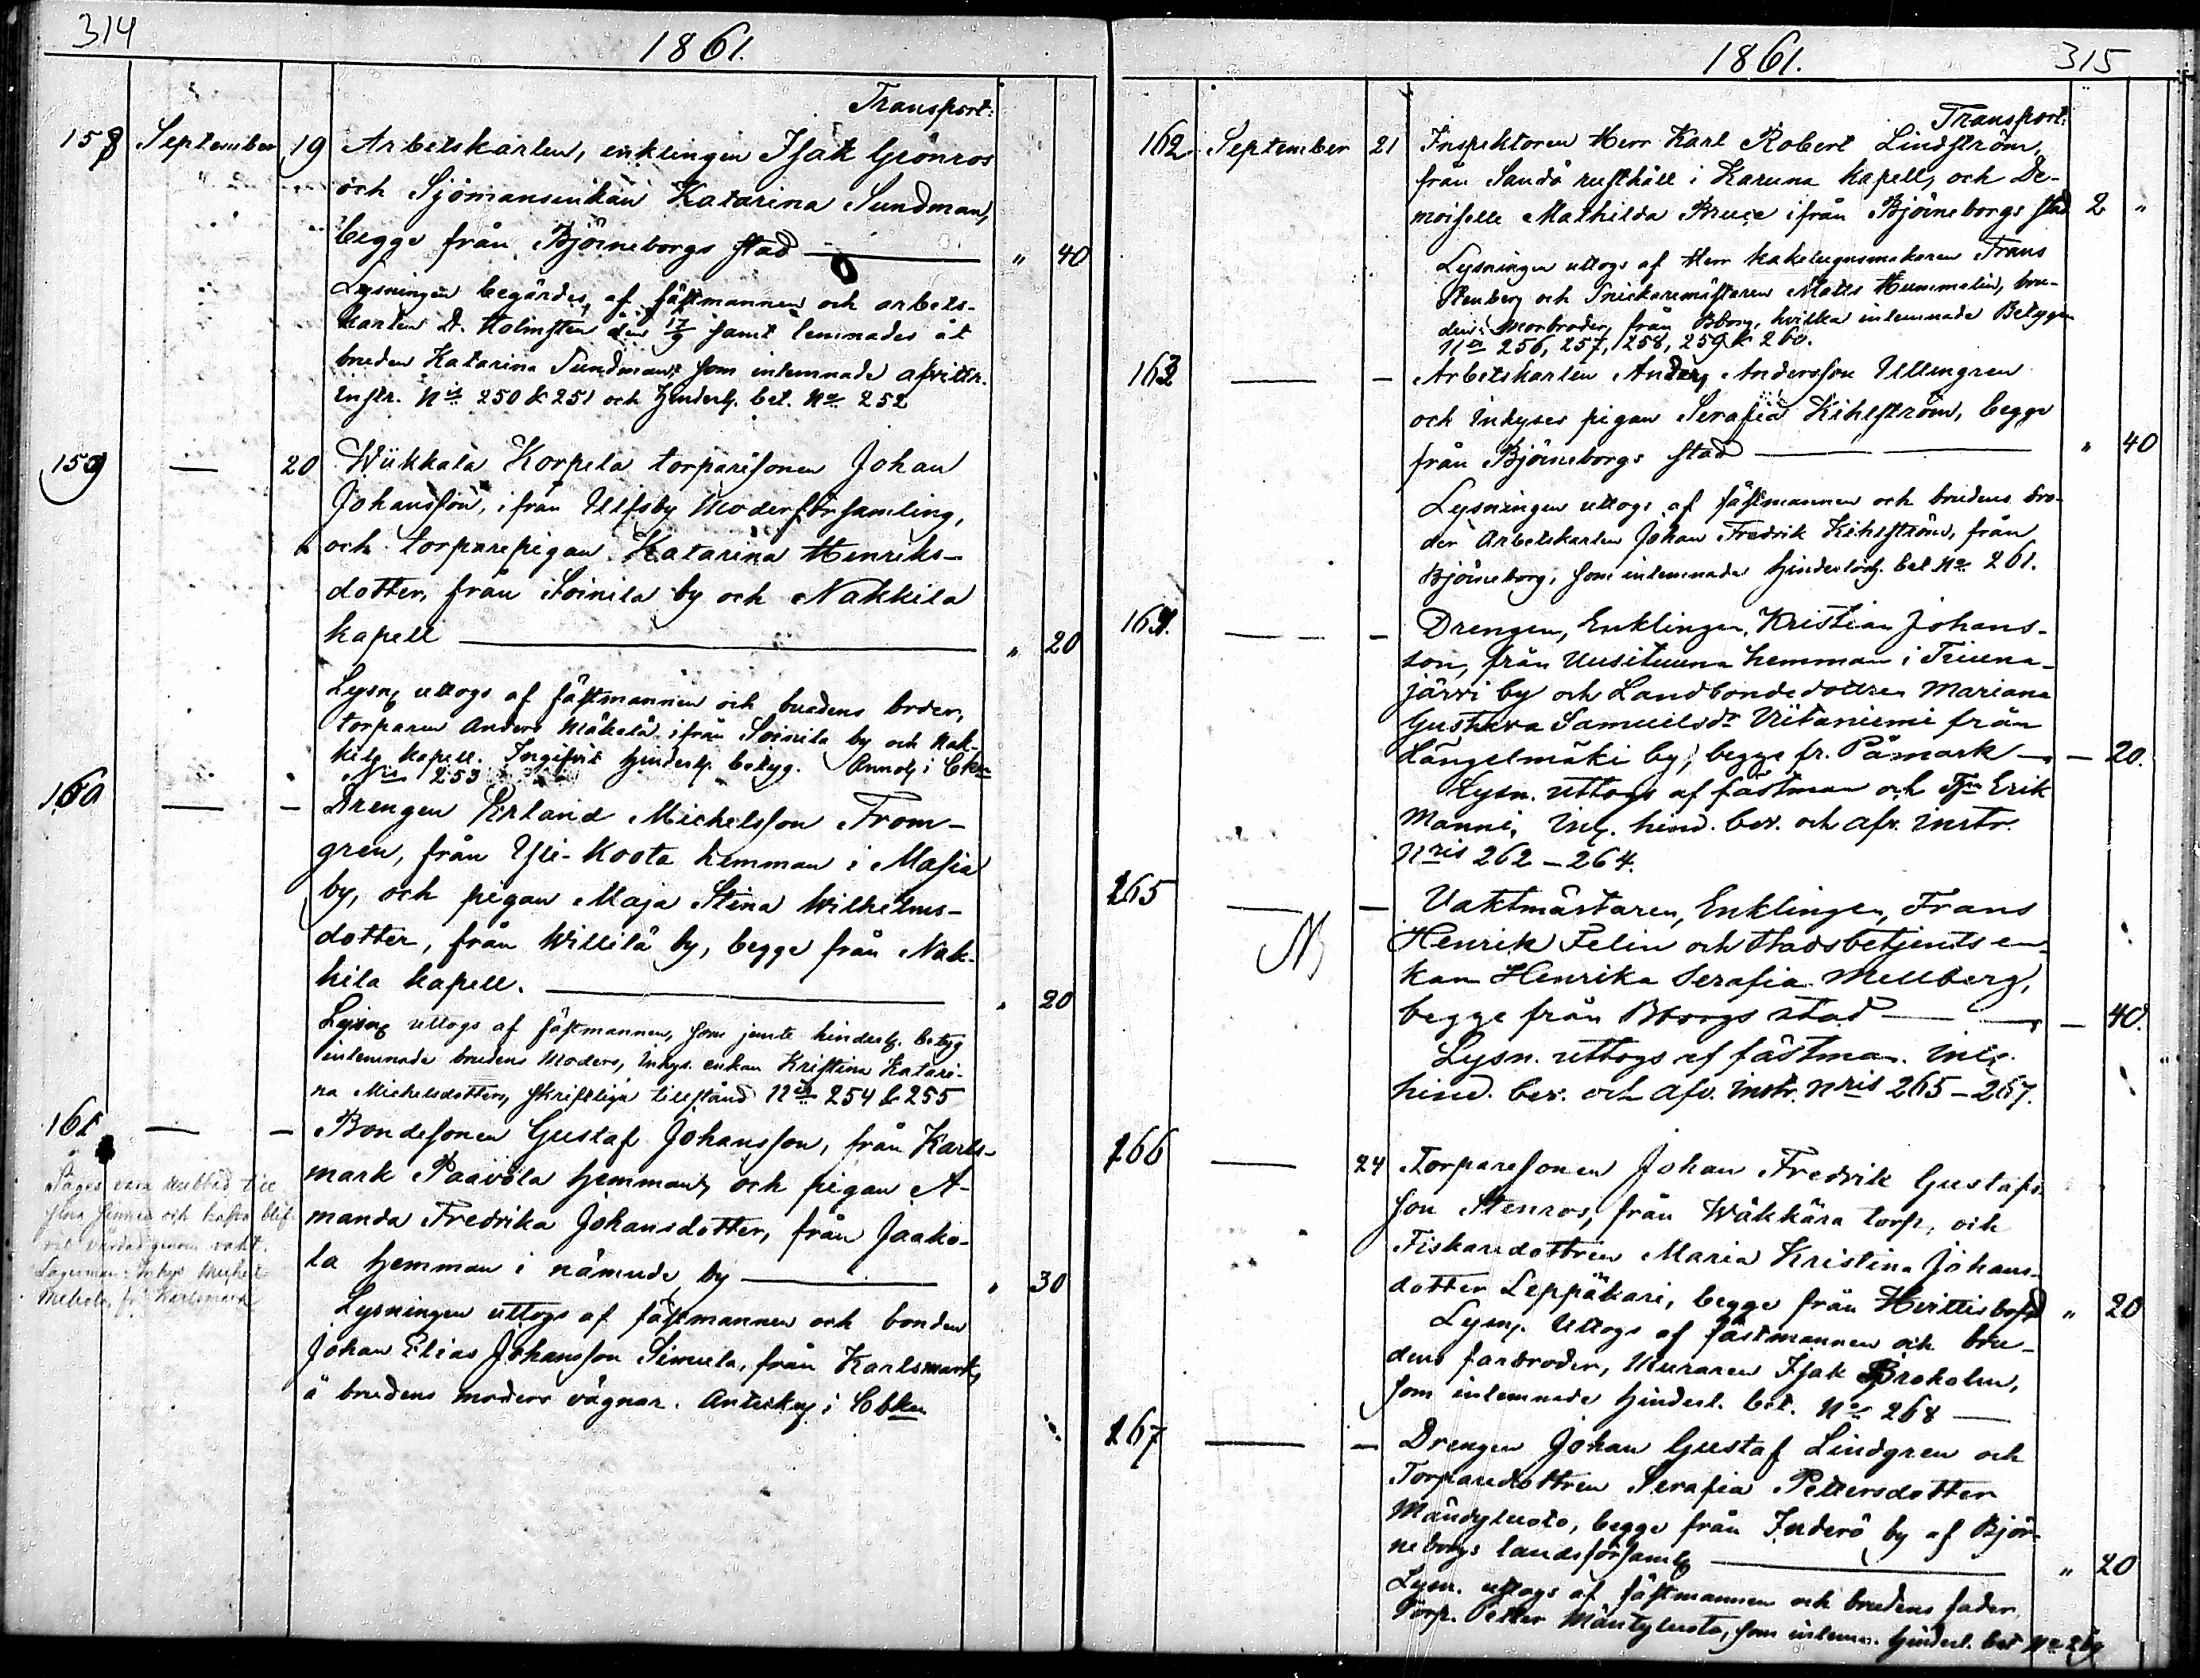 314
1861.
Transport:
158 September 19 Arbetskarlen, enklingen Isak Grönros
och Sjömansenkan Katarina Sundman,
begge från Björneborgs stad " 40
Lysningen begärdes, af fästmannen och arbets-
karlen D. Holmsten den 17/9 samt lemnades åt
bruden Katarina Sundman, som inlemnade afvittr.
Instr. Nis 250 & 251 och Hinderlh. bet. No 252
159 — 20 Wiikkala Korpela torparesonen Johan
Johansson, ifrån Ulfsby Moderförsamling,
och torparepigan Katarina Henriks-
dotter, från Soinila by och Nakkila
kapell " 20
Lysng uttogs af fästmannen och brudens broder,
torparen Anders Mäkelä ifrån Soinila by och Nak-
kila kapell. Ingifvit hinderlh. betyg.
No 253
160 — — Drengen Erland Michelsson From-
gren, från Yli-Koota hemman i Masia
by, och pigan Maja Stina Wilhelms-
dotter, från Willilä by, begge från Nak-
kila kapell. " 20
Lysng uttogs af fästmannen, som jemte hinderlh. betyg
inlemnade brudens Moders, Inhys. enkan Kristina Katari-
na Michelsdotters, skriftliga tillstånd No 254 & 255
161 — — Bondesonen Gustaf Johansson, från Karls-
mark Paavola hemman, och pigan A-
manda Fredrika Johansdotter, från Jaako-
la hemman i nämnde by " 30
Lysningen uttogs af fästmannen och bonden
Johan Elias Johansson Simula, från Karlsmark,
å brudens moders vägnar. i Cbken
Säges vara
och
Karlsmark
1861.
315
Transport:
162 September 21 Inspektoren Herr Karl Robert Lindström,
från Sandö rusthåll i Karuna kapell, och De-
moiselle Mathilda Bruce ifrån Björneborgs stad 2 "
Lysningen uttogs af Herr kakelugnsmakaren Frans
Stenberg och Snickaremästaren Matts Hummelin, bru-
dens Morbroder, från Bborg, hvilka inlemnade Betygen
No 256, 257, 258, 259 & 260.
163 — — Arbetskarlen Anders Andersson Ullengren
och Inhyses pigan Serafia Kihlström, begge
från Björneborgs stad " 40
Lysningen uttogs af fästmannen och brudens bro-
der Arbetskarlen Johan Fredrik Kihlström, från
Björneborg, som inlemnade hinderlösh. bet. No 261.
164. — — Drengen, Enklingen, Kristian Johans-
son, från Uusituuna hemman i Tuuna-
järvi by och Landbondedottren Mariana
Gustava Samuelsdr Viitaniemi från
Längelmäki by, begge fr. Påmark — 20.
Lysn. uttogs af fästman och Erik
Manni, inlg. hind. bev. och afv. instr.
Nris 262–264.
165 — — Vaktmästaren, Enklingen, Frans
Henrik Felin och Stadsbetjents en-
kan Henrika Serafia Mellberg,
begge från Bborgs stad — 40.
Lysn. uttogs af fästman. inlg.
hind. bev. och afv. instr. Nris 265–267.
166 — 24 Torparesonen Johan Fredrik Gustafs-
son Stenros, från Wäkkärä torp, och
Fiskaredottren Maria Kristina Johans-
dotter Leppäkari, begge från " 20
Lysng. Uttogs af fästmannen och bru-
dens farbroder, Muraren Isak Björkholm,
som inlemnade hinderl. bet. No 268
167 — — Drengen Johan Gustaf Lindgren och
Torparedottren Serafia Pettersdotter
Mäntyluoto, begge från Inderö by af Björ-
neborgs landsförsamlg " 20
Lysn. uttogs af fästmannen och brudens fader,
Torp. Petter Mäntyluoto, som inlemn. hinderl. bet No 269